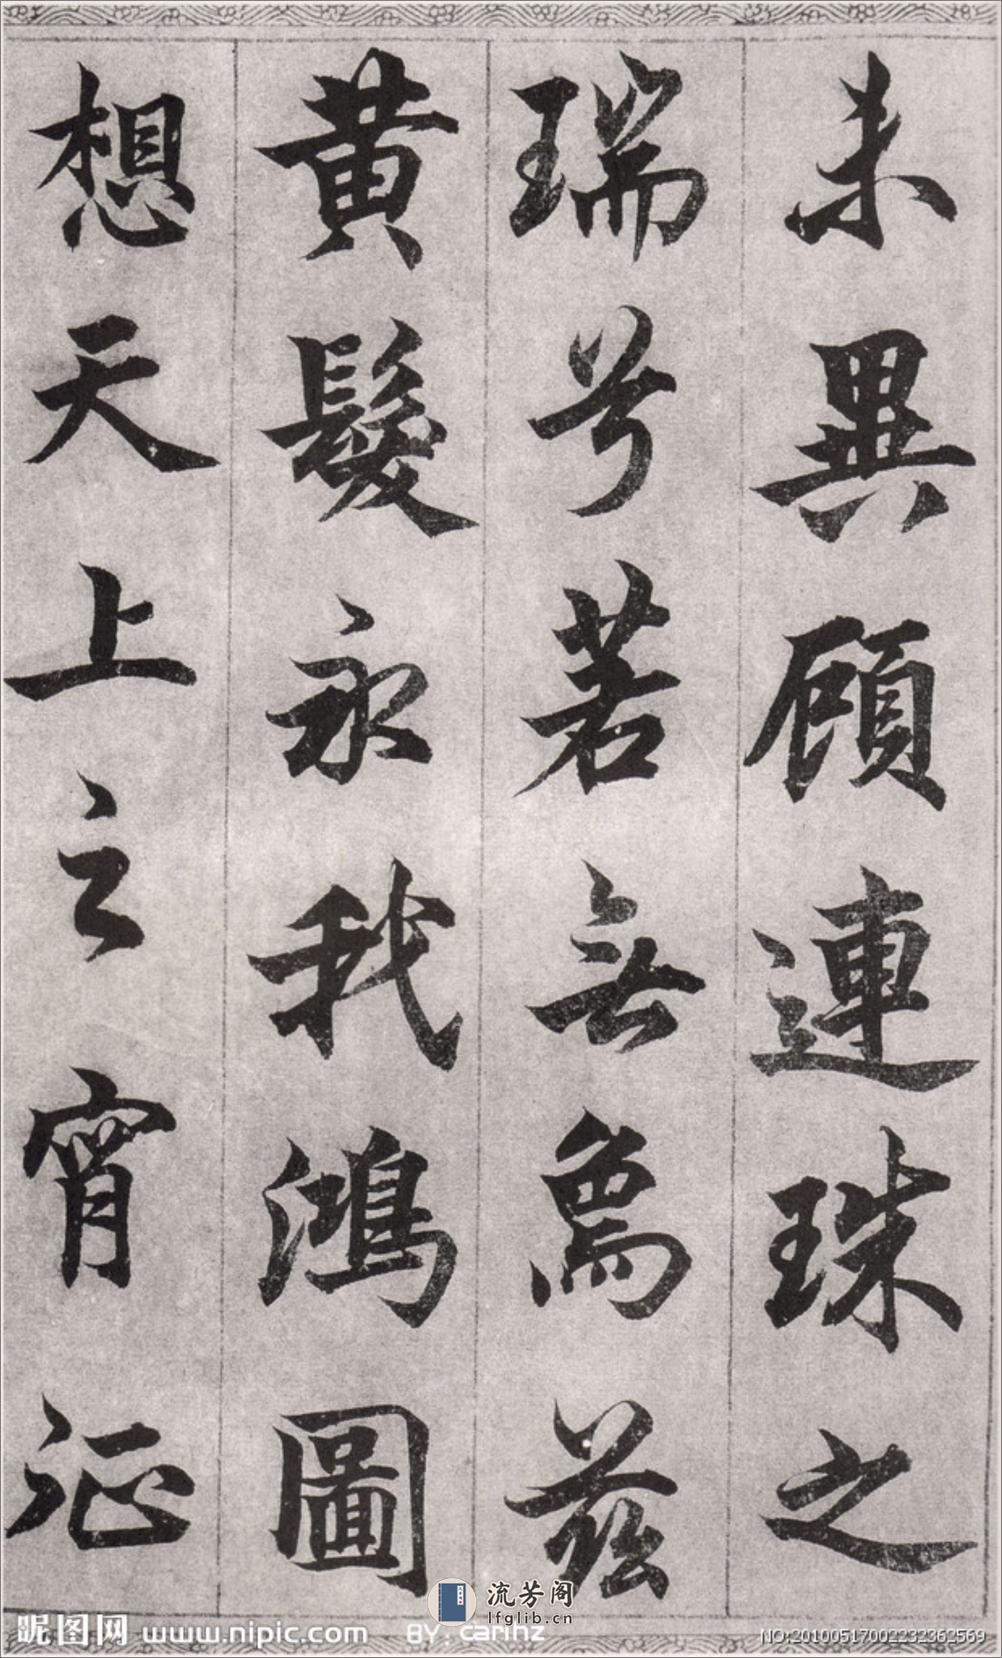 未異顧連珠之
瑞兮若無為茲
黃髮永我鴻圖
想天上之宵征
流芳阁
lfglib.cn
昵图网 www.nipic.com BY: carihz
NO:20100517002232362569